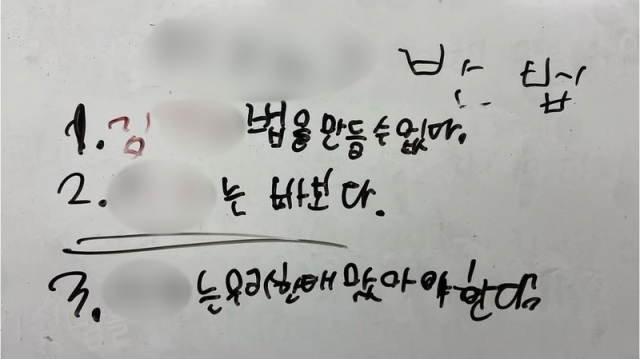 법
1. 김 법을 만들 수 없다.
2. 는 바보다.
3. 는 우리한테 맞아야 한다